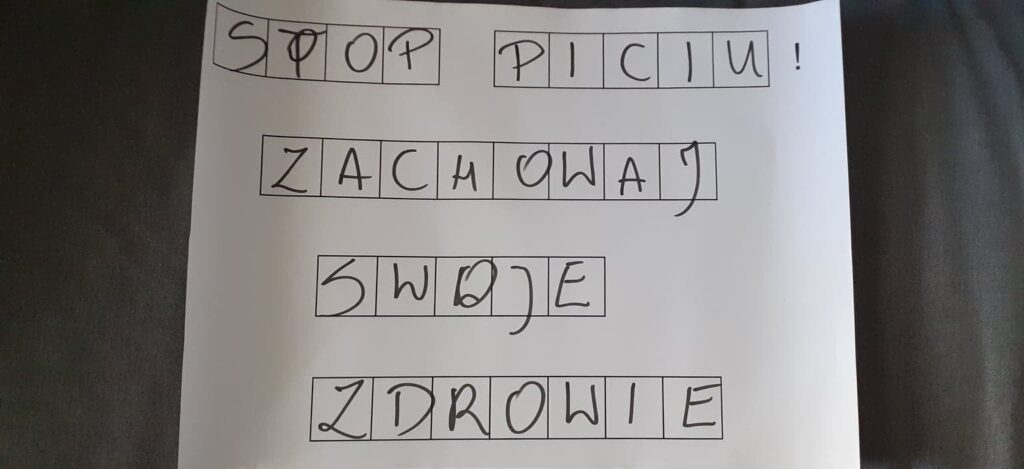 STOP PICIU!
ZACHOWAJ
SWOJE
ZDROWIE